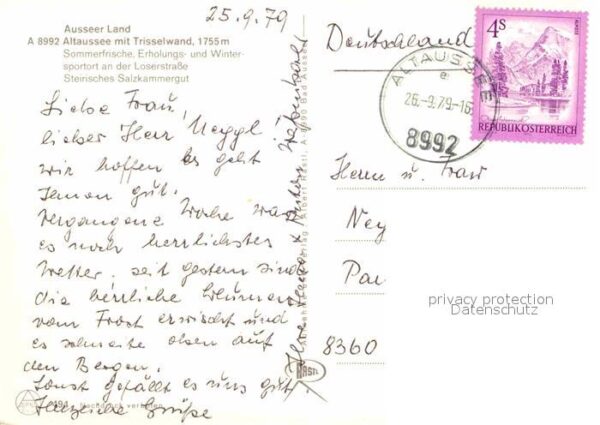 25.9.79
Ausseer Land
A 8992 Altaussee mit Trisselwand, 1755 m
Sommerfrische, Erholungs- und Winter-
sportort an der Loserstraße
Steirisches Salzkammergut
Liebe Frau,
lieber Herr
wir hoffen es geht
Ihnen gut.
Vergangene Woche war
es noch herrlichstes
Wetter. seit gestern sind
die herrliche Blumen
vom Frost erwischt und
es schneite oben auf
den Bergen.
Sonst gefällt es uns gut
Herzliche Grüße
Nachdruck verboten
RASTL
Deutschland
4S
REPUBLIK ÖSTERREICH
ALTAUSSEE
26.-9.79-16
8992
Herrn u. Frau
Ney
Pau
8360
privacy protection
Datenschutz